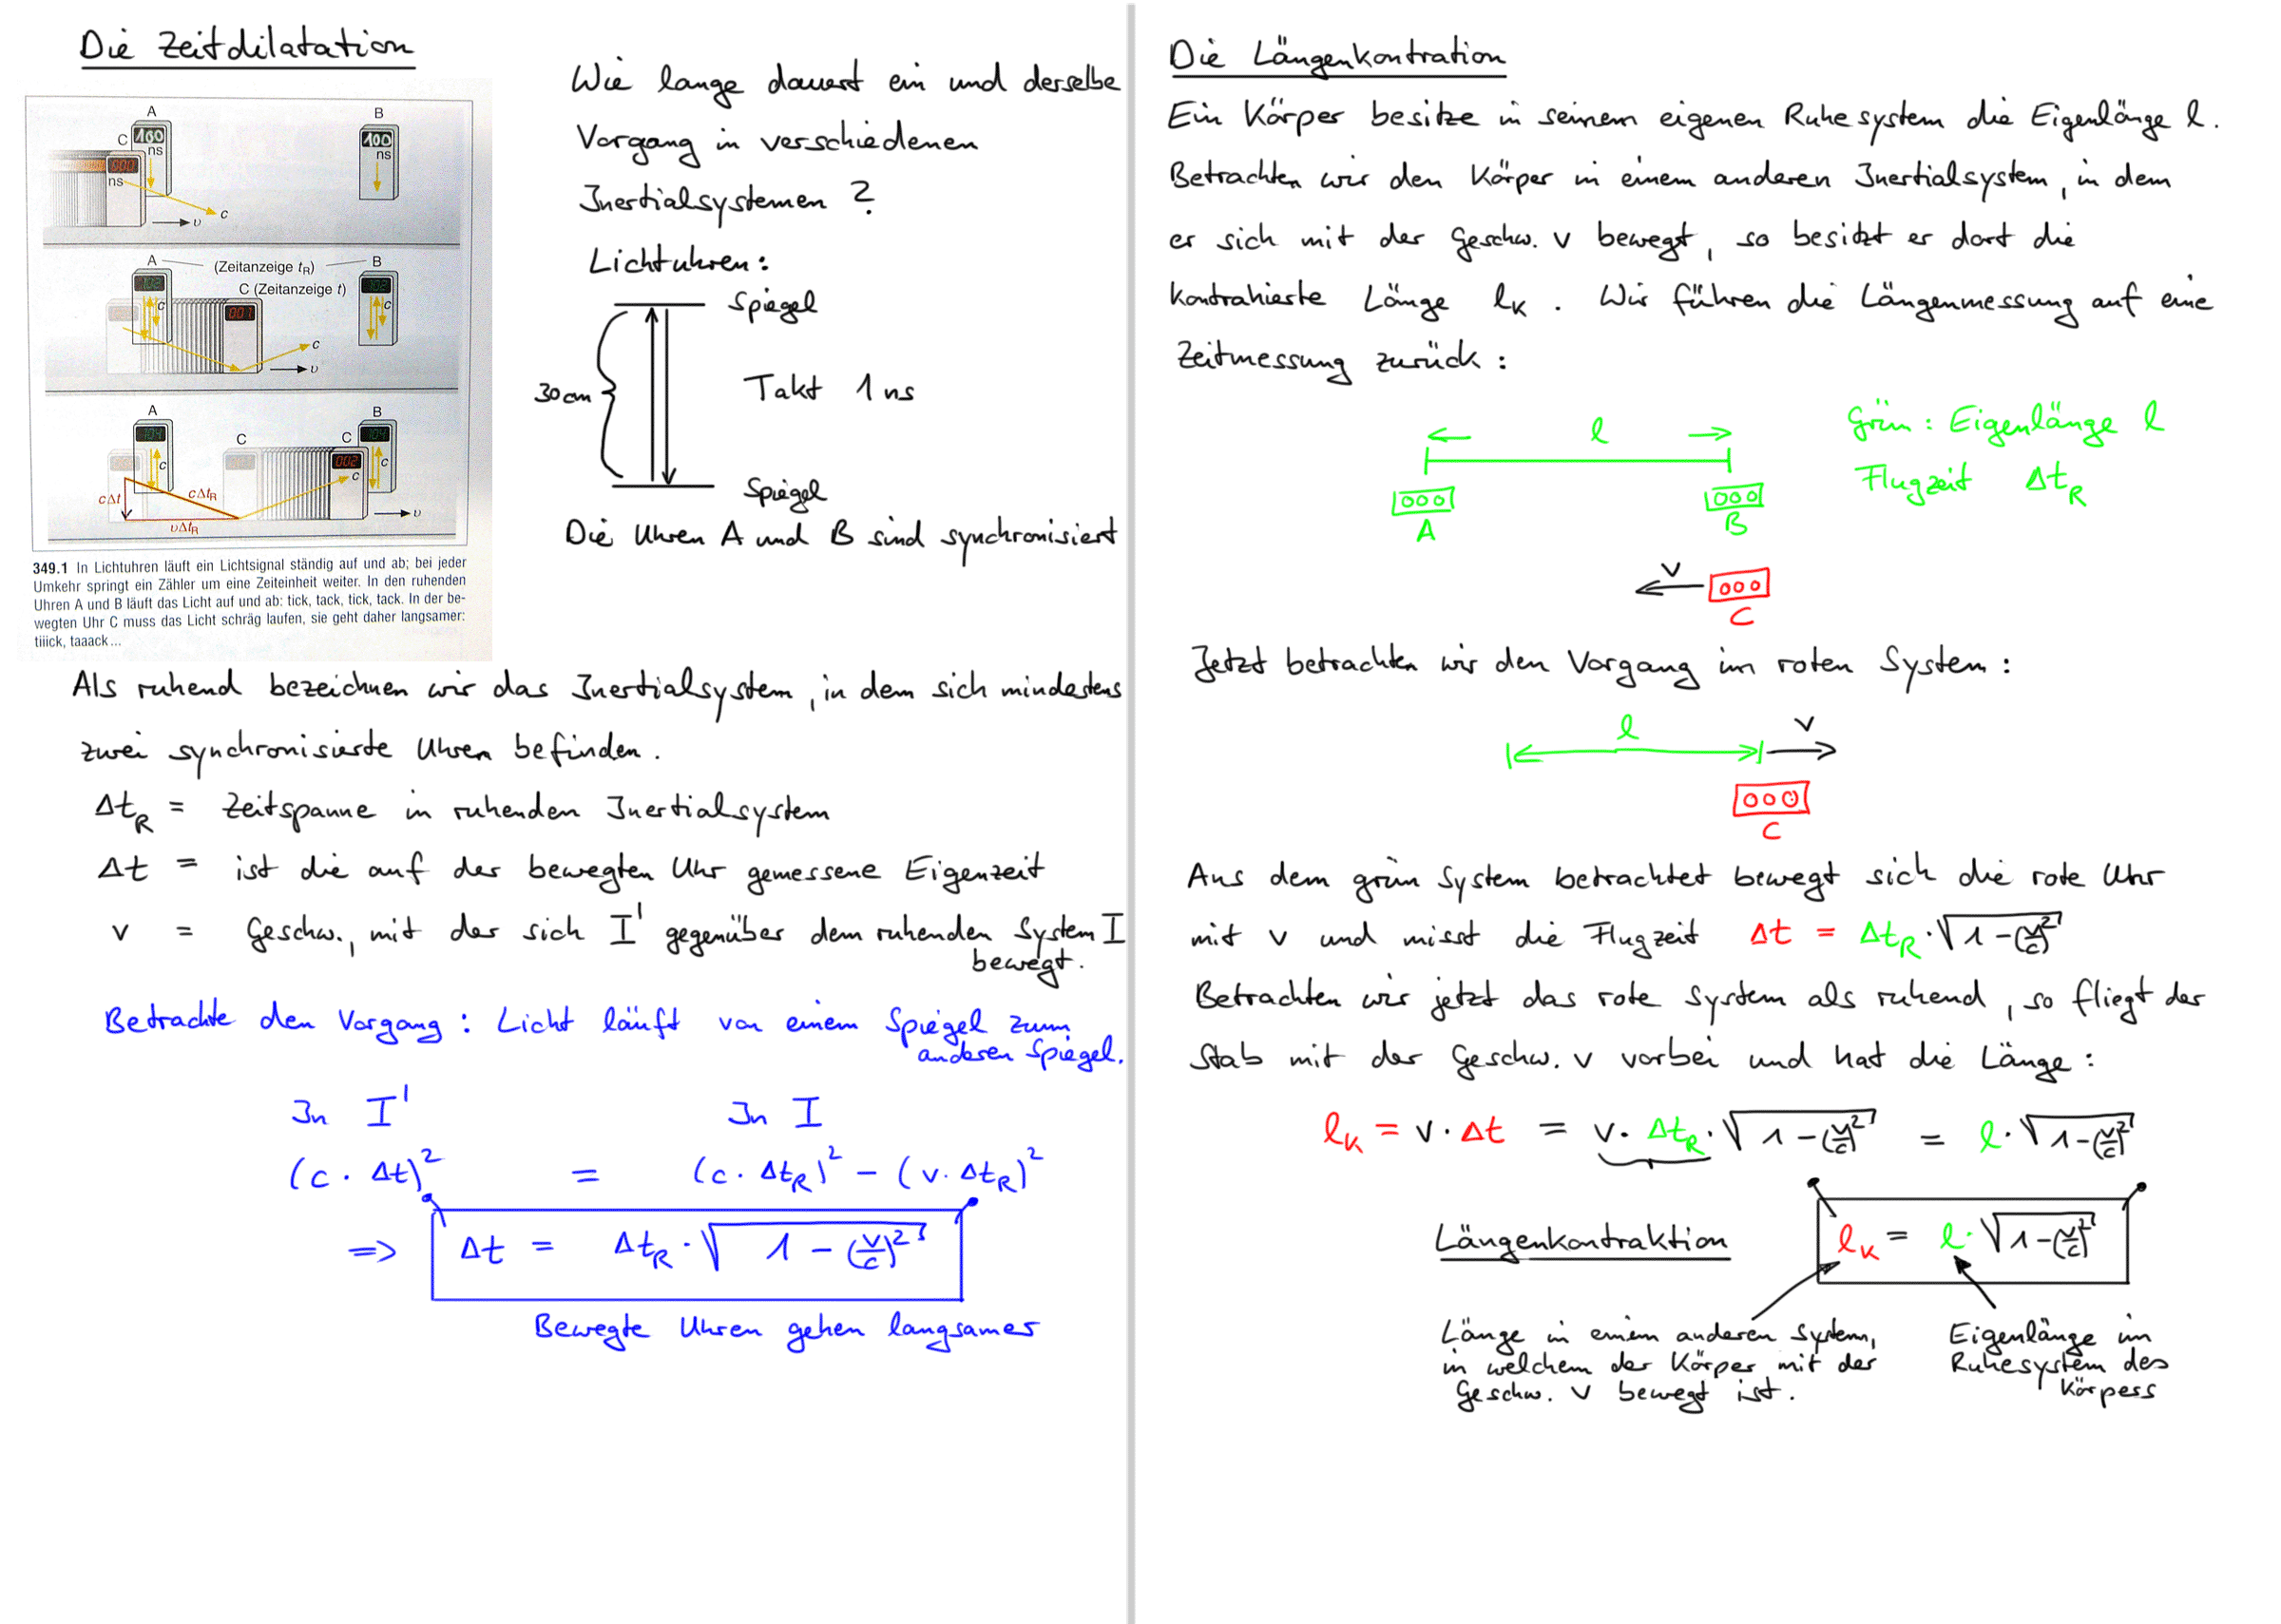 Die Zeitdilatation
A
B
C
100
ns
100
ns
000
ns
c
v
A
(Zeitanzeige tR)
B
C (Zeitanzeige t)
c
c
001
c
v
A
B
C
C
104
104
c
002
c
c
cΔt
cΔtR
vΔtR
v
349.1 In Lichtuhren läuft ein Lichtsignal ständig auf und ab; bei jeder
Umkehr springt ein Zähler um eine Zeiteinheit weiter. In den ruhenden
Uhren A und B läuft das Licht auf und ab: tick, tack, tick, tack. In der be-
wegten Uhr C muss das Licht schräg laufen, sie geht daher langsamer:
tiiick, taaack...
Wie lange dauert ein und derselbe
Vorgang in verschiedenen
Inertialsystemen ?
Lichtuhren:
Spiegel
30cm
Takt 1 ns
Spiegel
Die Uhren A und B sind synchronisiert
Als ruhend bezeichnen wir das Inertialsystem, in dem sich mindestens
zwei synchronisierte Uhren befinden.
ΔtR = Zeitspanne in ruhenden Inertialsystem
Δt = ist die auf der bewegten Uhr gemessene Eigenzeit
v = Geschw., mit der sich I' gegenüber dem ruhenden System I
bewegt.
Betrachte den Vorgang: Licht läuft von einem Spiegel zum
anderen Spiegel.
In I' In I
(c · Δt)² = (c · ΔtR)² − (v · ΔtR)²
=> Δt = ΔtR · √(1 − (v/c)²)
Bewegte Uhren gehen langsamer
Die Längenkontration
Ein Körper besitze in seinem eigenen Ruhesystem die Eigenlänge l.
Betrachten wir den Körper in einem anderen Inertialsystem, in dem
er sich mit der Geschw. v bewegt, so besitzt er dort die
kontrahierte Länge lK. Wir führen die Längenmessung auf eine
Zeitmessung zurück:
l
Grün: Eigenlänge l
Flugzeit ΔtR
000
000
A
B
v
000
C
Jetzt betrachten wir den Vorgang im roten System:
l
v
000
C
Aus dem grün System betrachtet bewegt sich die rote Uhr
mit v und misst die Flugzeit Δt = ΔtR · √(1 − (v/c)²)
Betrachten wir jetzt das rote System als ruhend, so fliegt der
Stab mit der Geschw. v vorbei und hat die Länge:
lK = v · Δt = v · ΔtR · √(1 − (v/c)²) = l · √(1 − (v/c)²)
Längenkontraktion lK = l · √(1 − (v/c)²)
Länge in einem anderen System,
in welchem der Körper mit der
Geschw. v bewegt ist.
Eigenlänge im
Ruhesystem des
Körpers